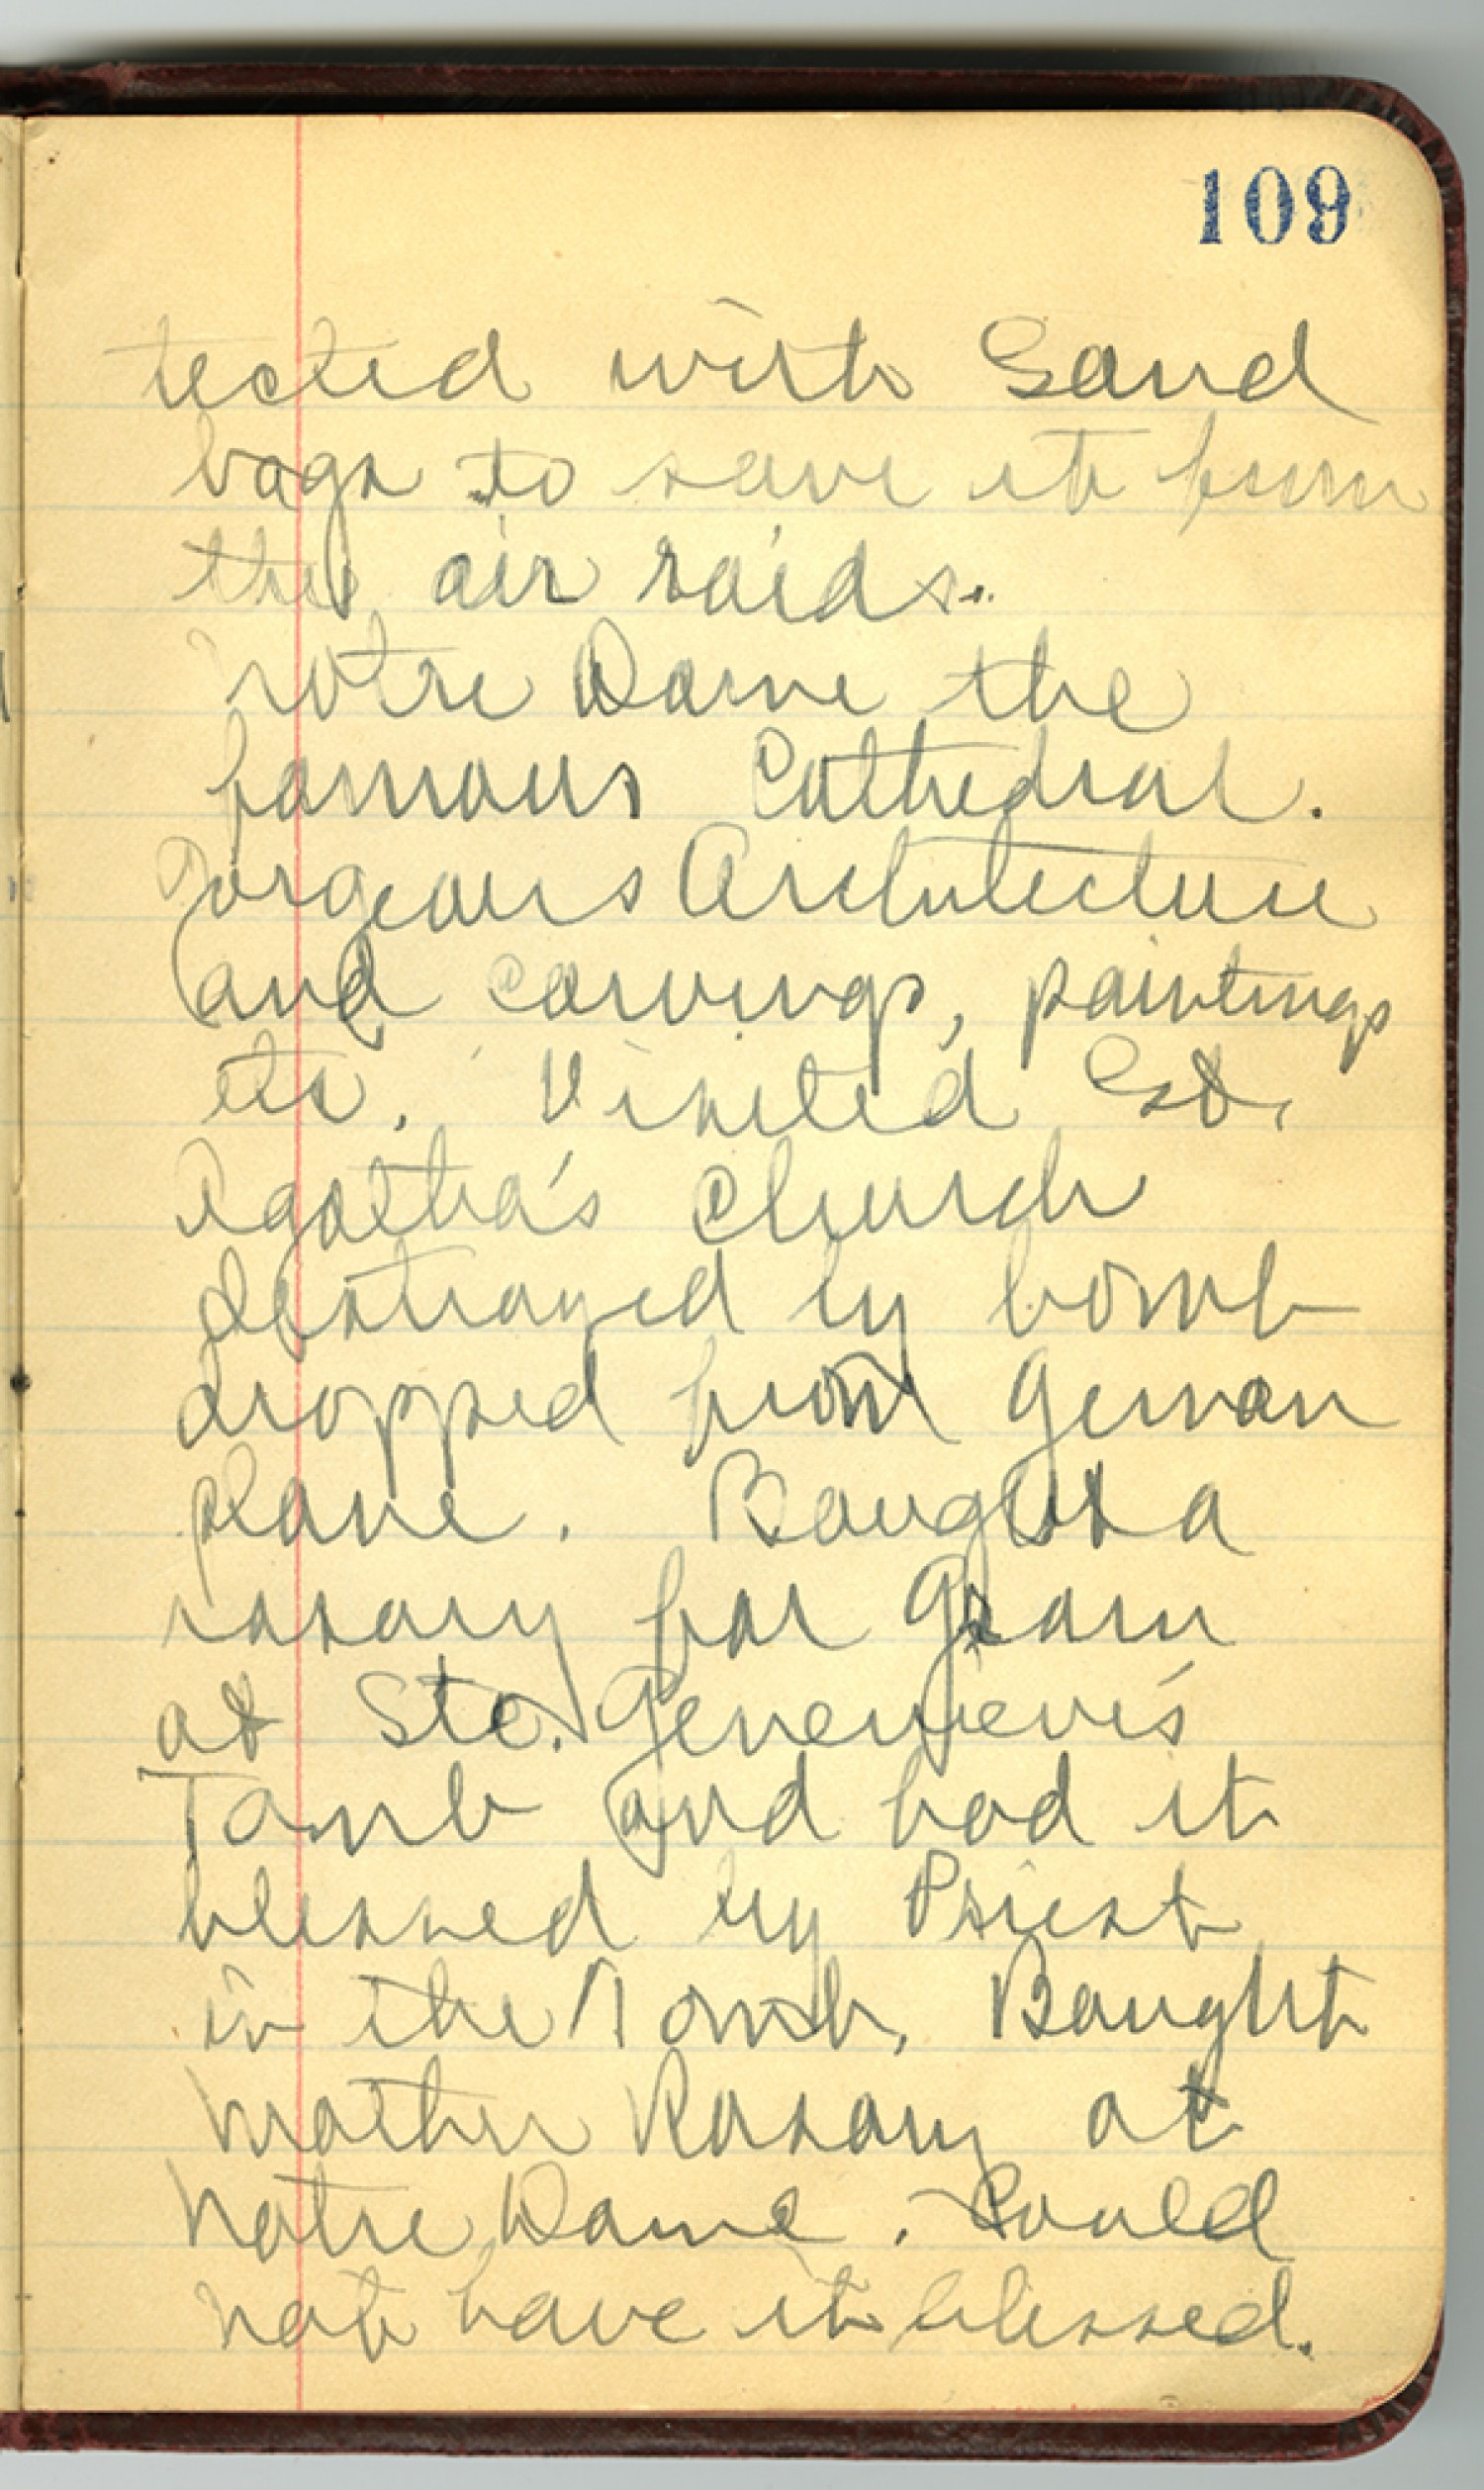 109
tected with Sand
bags to save it from
the air raids.
Notre Dame the
famous Cathedral.
Gorgeous Architecture
and carvings, paintings
etc. Visited St.
Agatha's Church
destroyed by bomb
dropped from German
plane. Bought a
rosary for Gram
at Ste. Genevieve's
Tomb and had it
blessed by Priest
in the Tomb. Bought
mother Rosary at
Notre Dame. Could
not have it blessed.